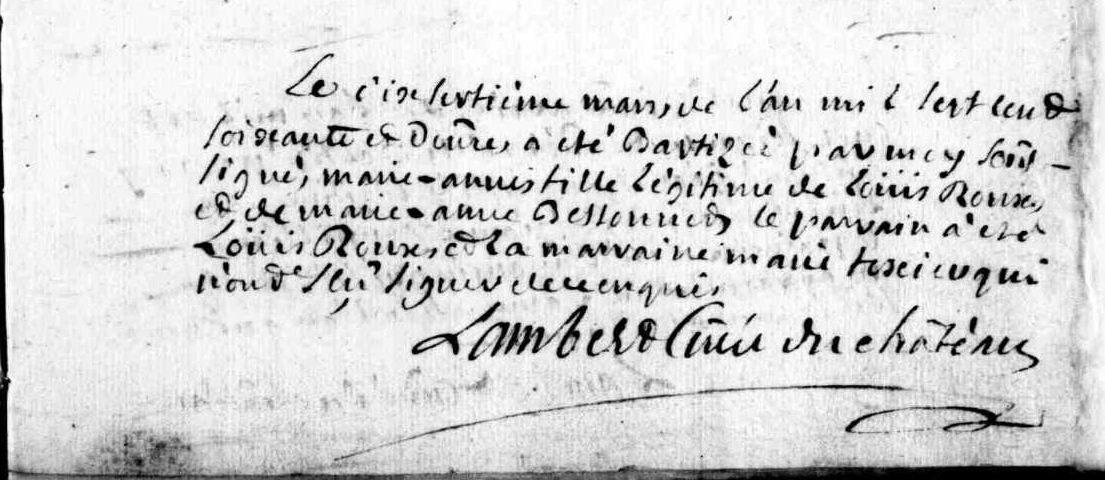 Le dixseptième mars, de l'an mil sept cend
soixante et douze, a été Baptizéé par moy sous
signé, marie-anne, fille légitime de Loüis Roux,
et de marie-anne le parrain à été
Loüis Roux, et la marraine marie qui
n'ond sçu signer de ce enquis
Lambert Curé du château